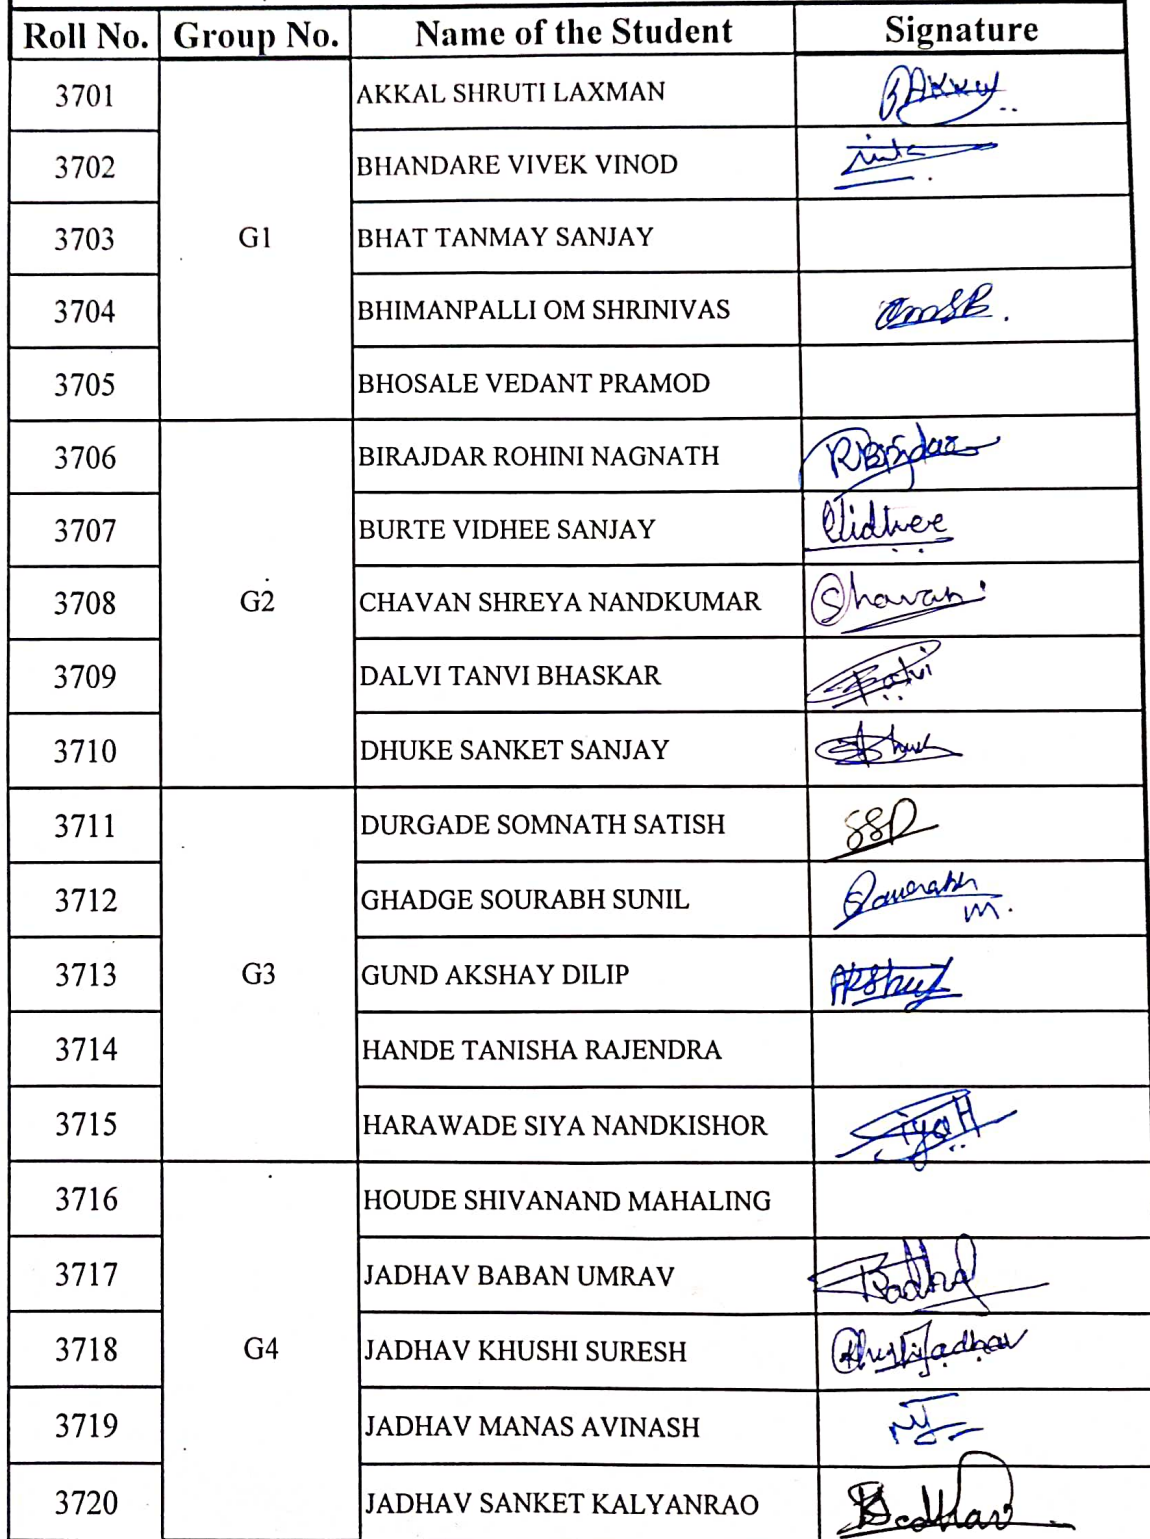 Roll No. Group No. Name of the Student Signature
3701 AKKAL SHRUTI LAXMAN
3702 BHANDARE VIVEK VINOD
3703 G1 BHAT TANMAY SANJAY
3704 BHIMANPALLI OM SHRINIVAS OmSB.
3705 BHOSALE VEDANT PRAMOD
3706 BIRAJDAR ROHINI NAGNATH
3707 BURTE VIDHEE SANJAY Vidhee
3708 G2 CHAVAN SHREYA NANDKUMAR Chavan
3709 DALVI TANVI BHASKAR
3710 DHUKE SANKET SANJAY
3711 DURGADE SOMNATH SATISH SSD
3712 GHADGE SOURABH SUNIL
3713 G3 GUND AKSHAY DILIP Akshay
3714 HANDE TANISHA RAJENDRA
3715 HARAWADE SIYA NANDKISHOR Siya H
3716 HOUDE SHIVANAND MAHALING
3717 JADHAV BABAN UMRAV
3718 G4 JADHAV KHUSHI SURESH Khushi Jadhav
3719 JADHAV MANAS AVINASH
3720 JADHAV SANKET KALYANRAO